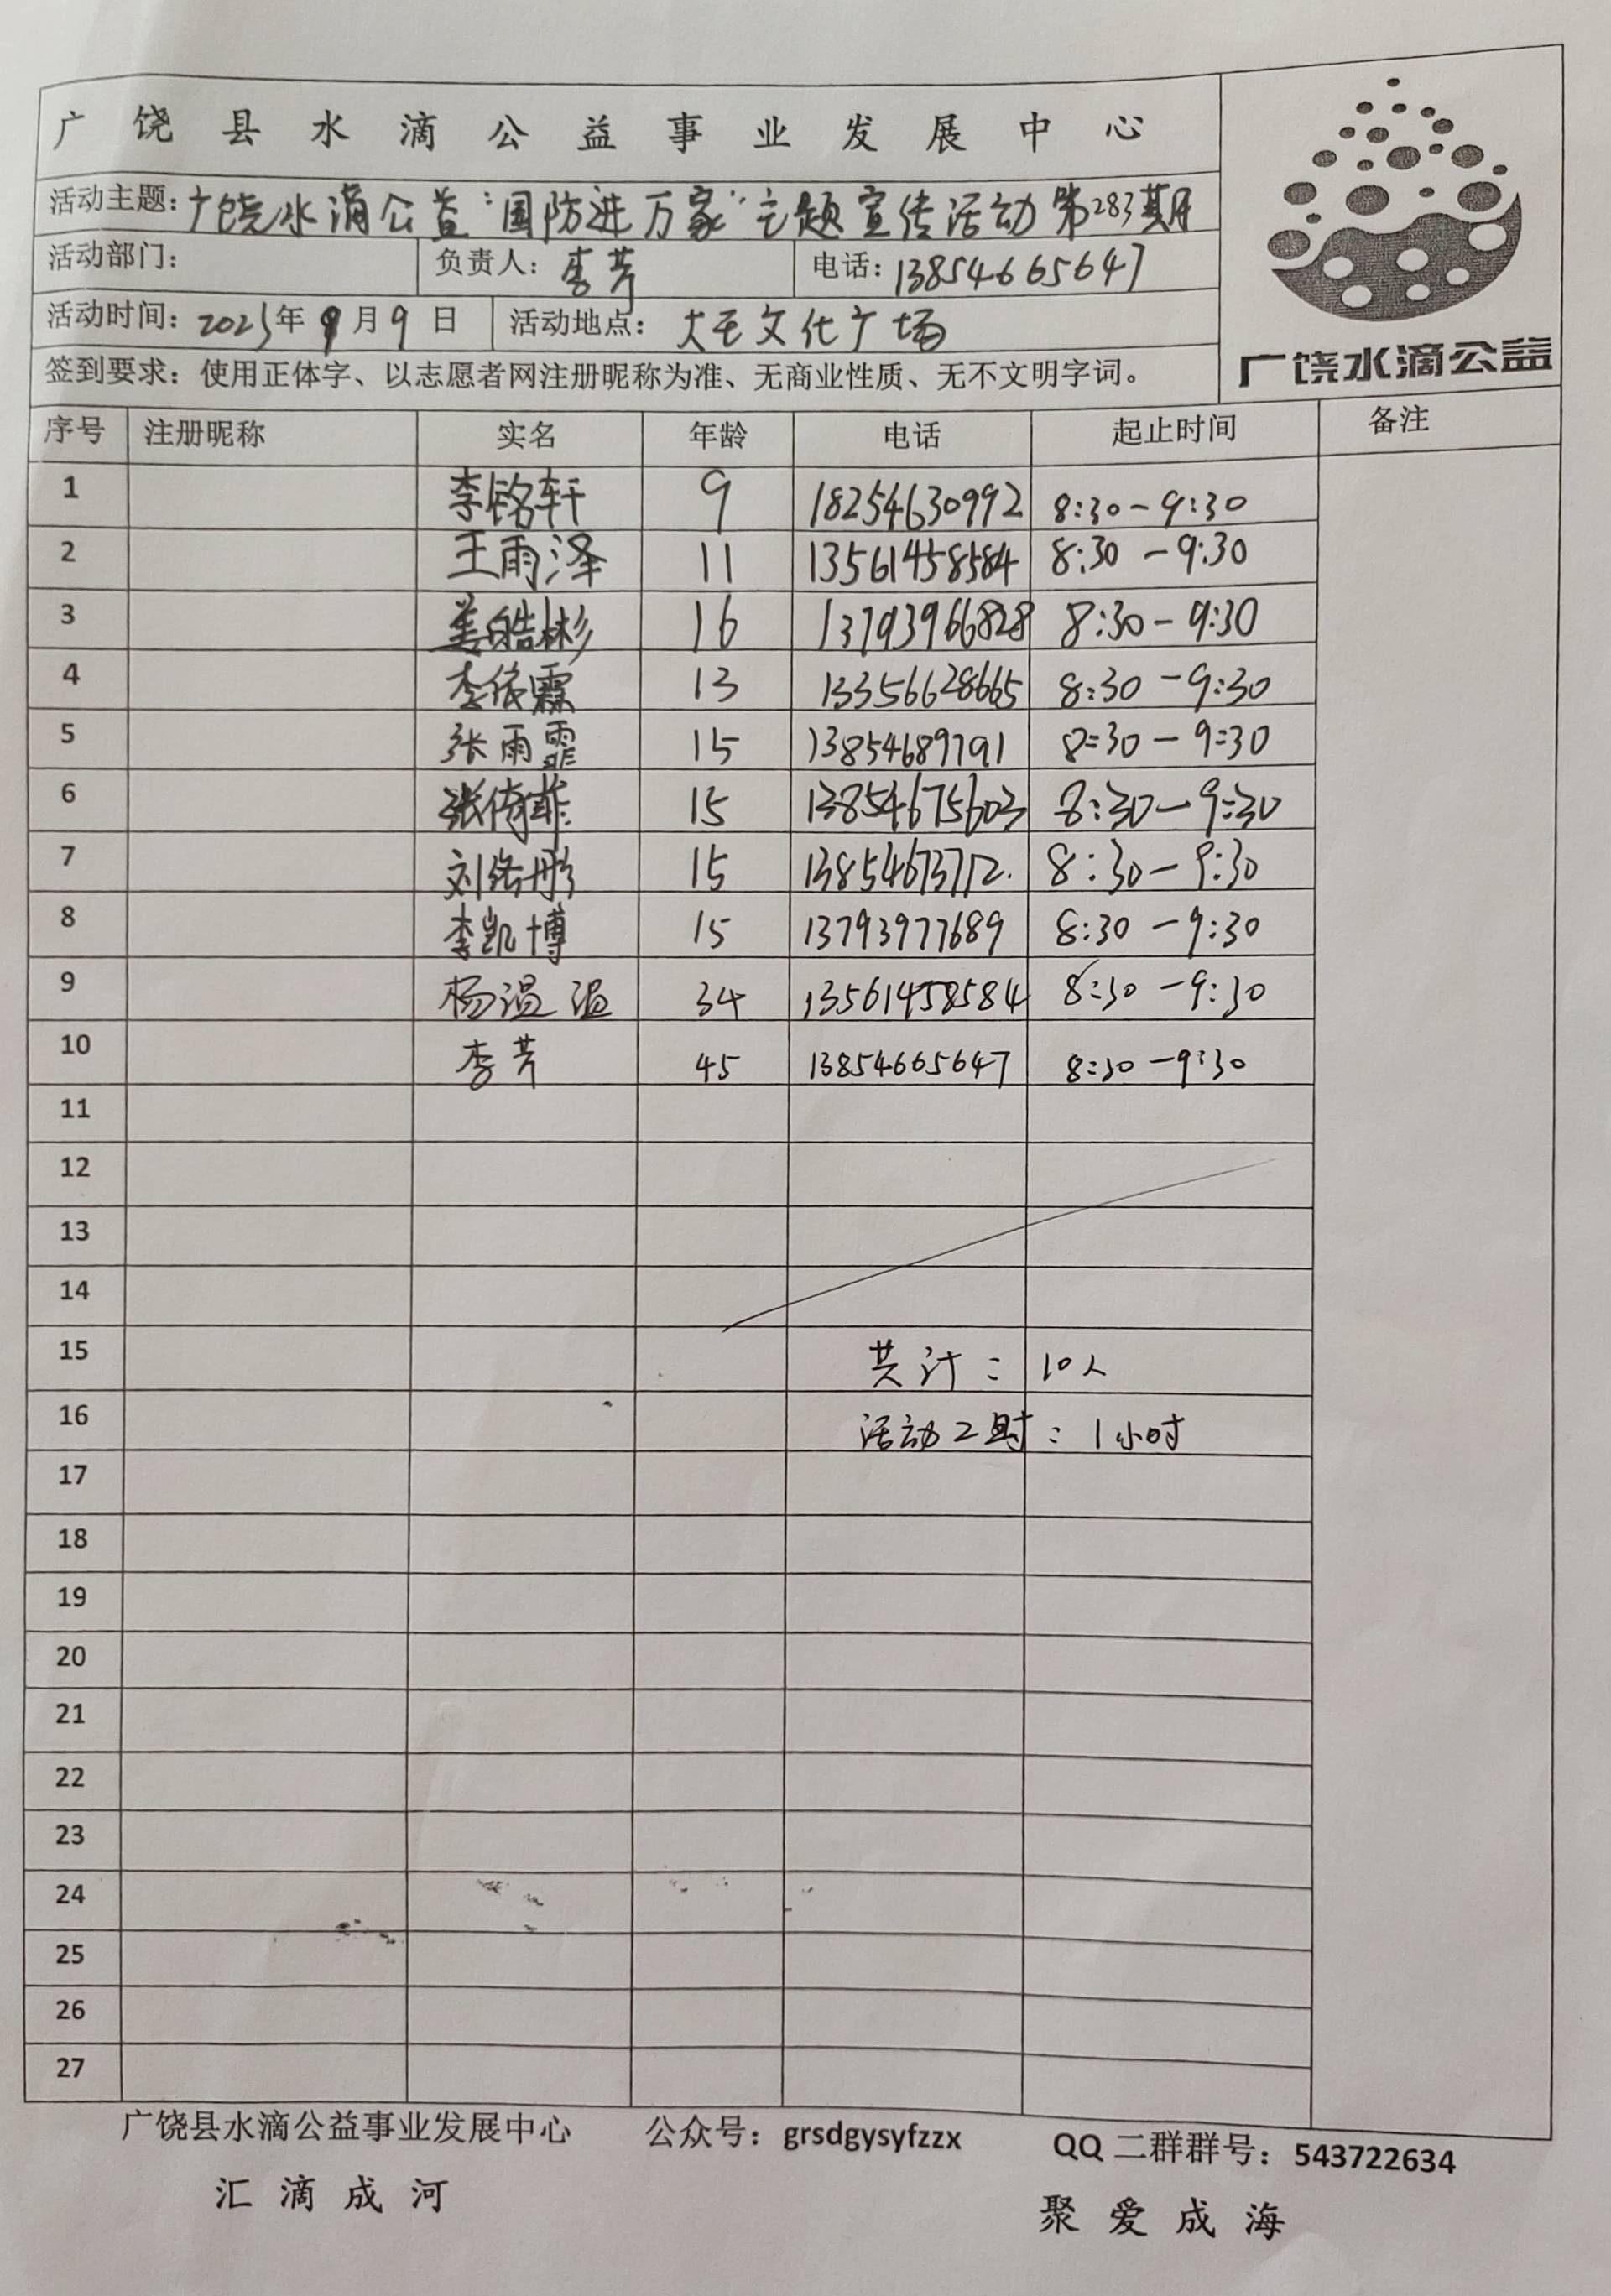 广饶县水滴公益事业发展中心
活动主题：广饶水滴公益“国防进万家”主题宣传活动第283期
活动部门： 负责人：李芹 电话：13854665647
活动时间：2023年9月9日 活动地点：大王文化广场
签到要求：使用正体字、以志愿者网注册昵称为准、无商业性质、无不文明字词。
广饶水滴公益
序号 注册昵称 实名 年龄 电话 起止时间 备注
1 李铭轩 9 18254630992 8:30-9:30
2 王雨泽 11 13561458584 8:30-9:30
3 姜皓彬 16 13793966828 8:30-9:30
4 李依霖 13 13356628665 8:30-9:30
5 张雨霏 15 13854689791 8:30-9:30
6 张倚菲 15 13854675603 8:30-9:30
7 刘 彤 15 13854673712 8:30-9:30
8 李凯博 15 13793977689 8:30-9:30
9 杨温温 34 13561458584 8:30-9:30
10 李芹 45 13854665647 8:30-9:30
11
12
13
14
15 共计：10人
16 活动工时：1小时
17
18
19
20
21
22
23
24
25
26
27
广饶县水滴公益事业发展中心 公众号：grsdgysyfzzx QQ二群群号：543722634
汇滴成河 聚爱成海